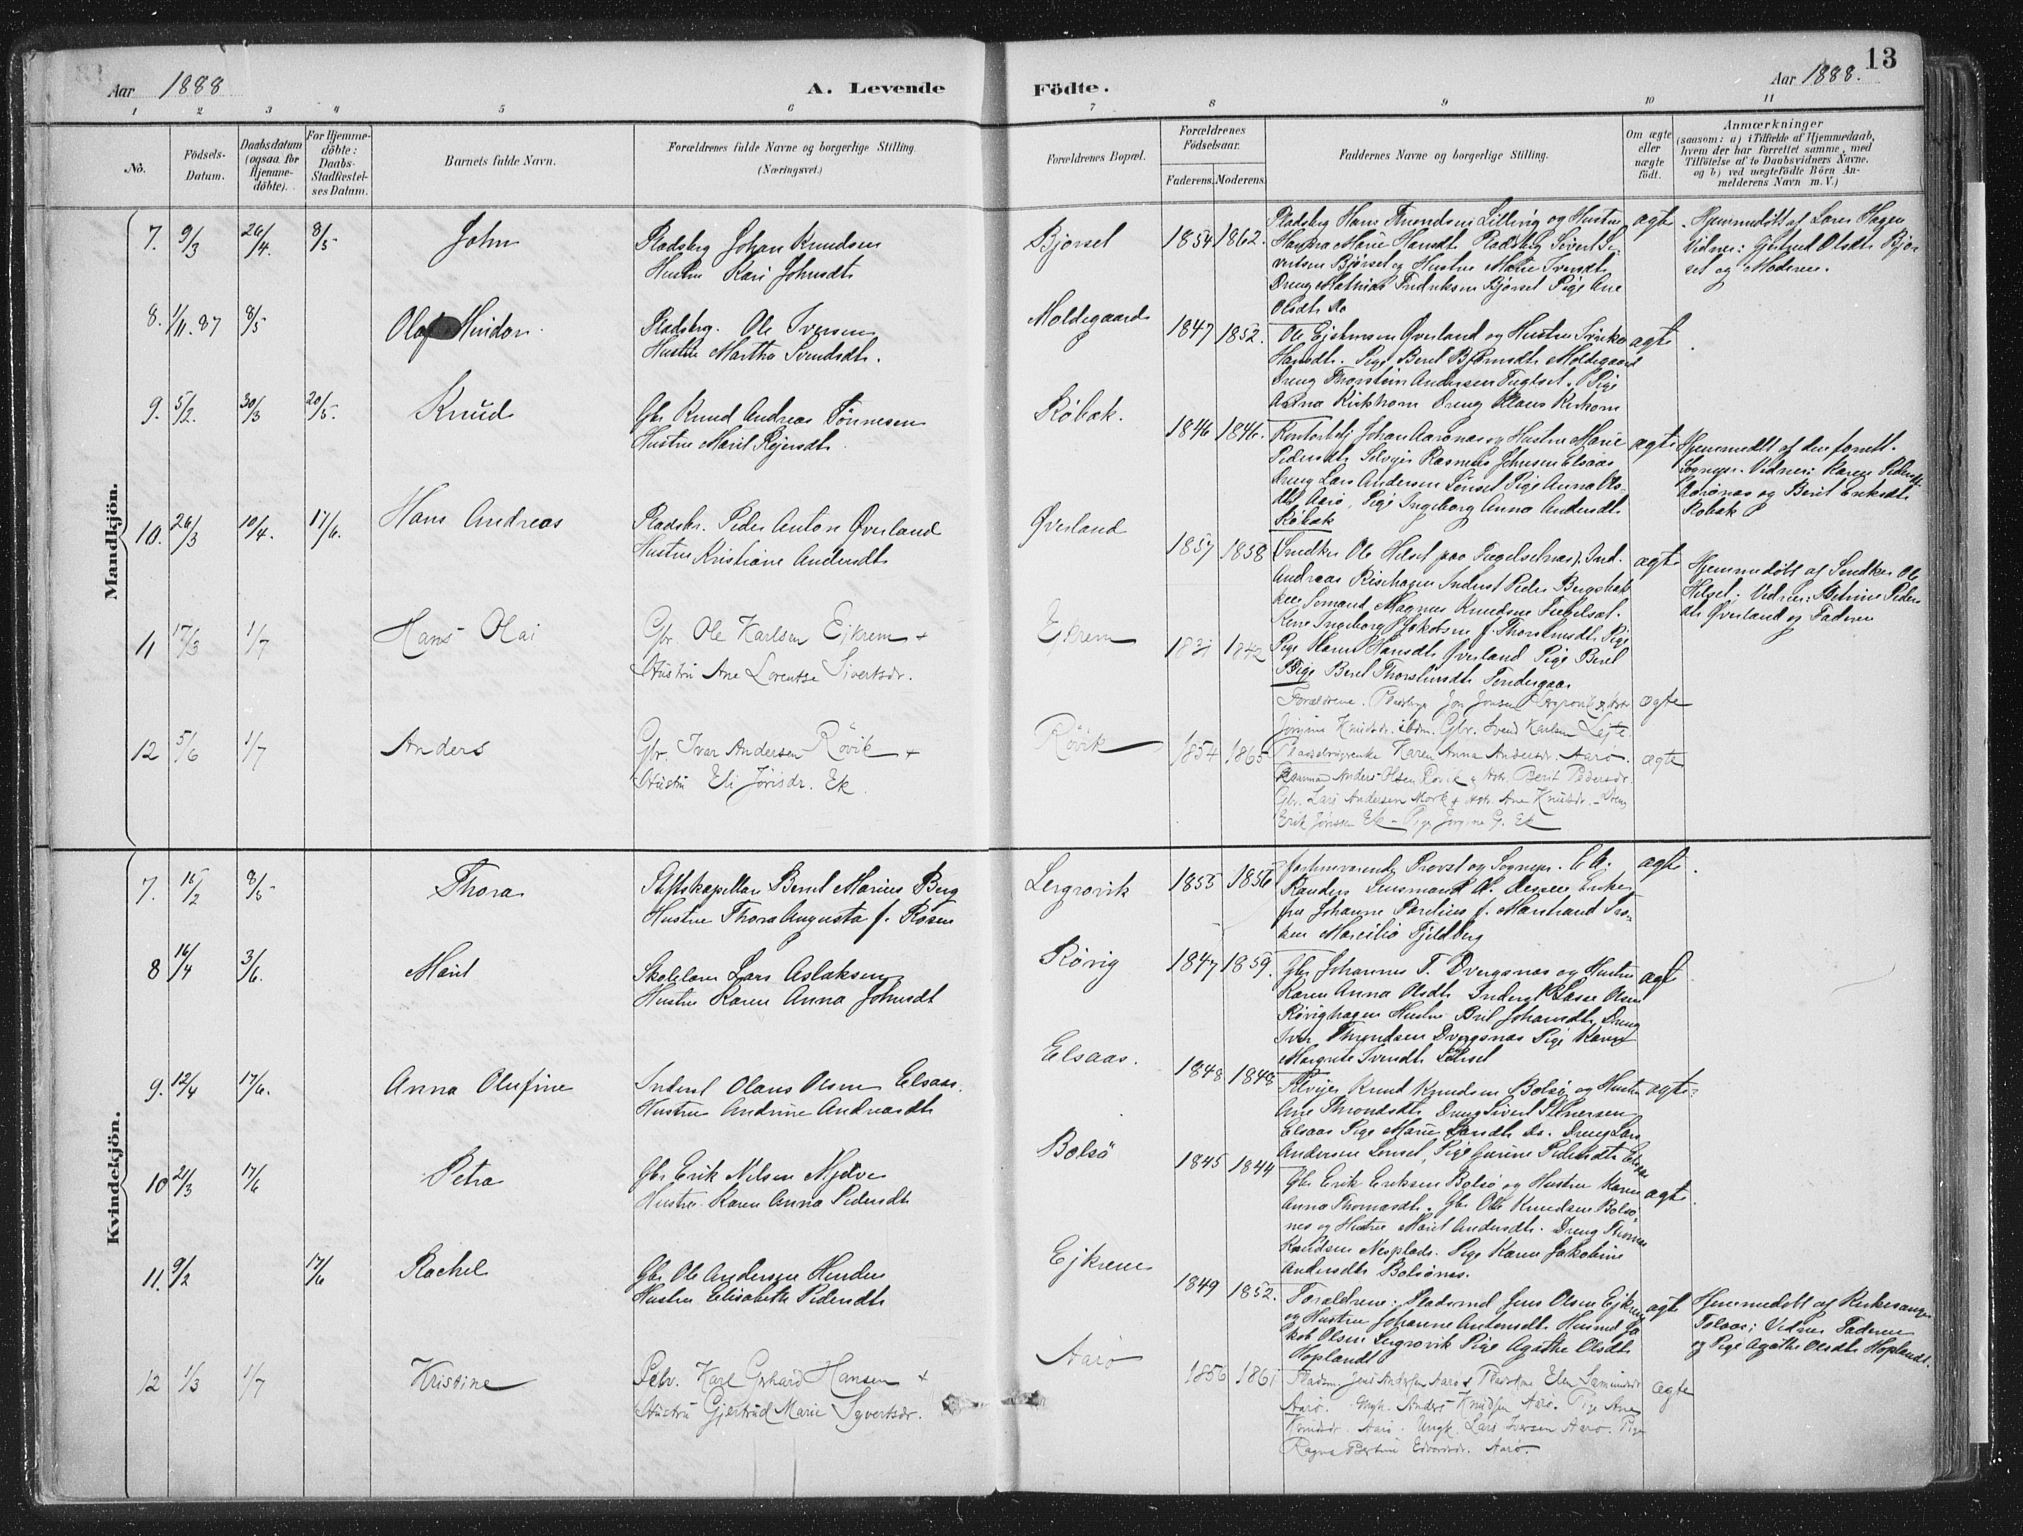 Aar 1888
A. Levende
Fødte.
Aar 1888.
13
1 2 3 4 5 6 7 8 9 10 11
No.
Fødsels-
Datum.
Daabsdatum
(ogsaa for
Hjemme-
døbte).
For Hjemme-
døbte:
Daabs-
Stadfæstel-
ses Datum.
Barnets fulde Navn.
Forældrenes fulde Navne og borgerlige Stilling.
(Næringsvei.)
Forældrenes Bopæl.
Forældrenes
Fødselsaar.
Faderens. Moderens.
Faddernes Navne og borgerlige Stilling.
Om ægte
eller
uægte
født.
Anmærkninger
(saasom: a) i Tilfælde af Hjemmedaab,
hvem der har forrettet samme, med
Tilføielse af to Daabsvidners Navne.
og b) ved uægtefødte Børn An-
melderens Navn m. V.)
Mandkjøn.
7. 9/3 26/4. 8/5 John
Pladsbg Johan Knudsen
Hustru Kari Johnsdt.
Bjørset 1854 1862.
Pladsbg Hans Throndsen Lillevig og Hustru
Hanna Marie Hansdt. Pladsbg Sivert Si-
vertsen Bjørset og Hustru Marie Iversdt.
Dreng Mathias Fredriksen Bjørset Pige Ane
Olsdt. Do
ægte
Hjemmedøbt af Lars Hagen
Vidner: Gjertrud Olsdt. Bjør
set og Moderen.
8. 1/11. 87 8/5 Olaf Hindor
Pladsbg. Ole Iversen
Hustru Martha Svendsdt.
Moldegaard 1847 1852.
Ole Ejckmsen Øverland og Hustru
Hansdt. Pige Beret Bjørnsdt. Moldegaard
Dreng Thorstein Andersen Fuglset. Pige
Anna Kirkhorn Dreng Klaus Kirkhorn
ægte
9. 5/2. 30/3 20/5. Knud
Gbr Knud Andreas Tønnesen
Hustru Marit Rejersdt.
Røbæk. 1846 1846.
Kontorbetj. Johan Aarønæs og Hustru Marie
Pedersdt. Selvejer Rasmus Johnsen Elsaas
Dreng Lars Andersen Lønset Pige Anna Ols-
dt. Aarø, Pige Ingeborg Anna Andersdt.
Røbæk
ægte
Hjemmedbt af den forrett.
Sognepr. Vidner: Karen Pedersdt.
Aarønæs og Berit Eriksdt.
Røbæk
10. 26/3 10/4. 17/6. Hans Andreas
Pladsbr. Peder Anton Øverland
Hustru Kristiane Andersdt.
Øverland 1857 1858
Snedker Ole Helset paa Fugelsetnæs, Ind.
Andreas Risehagen Inderst Peder Bergsbak
ken Sømand Magnus Knudsen Fugelset.
Pige Karen Hansdt. Øverland Pige Beret
Pige Beret Thorstensdt. Sondergaar
ægte
Hjemmedøbt af Snedker Ole
Helset. Vidner: Petrine Peders
dt. Øverland og Faderen
11 17/3 1/7 Hans Olai
Gbr. Ole Karlsen Ejkrem +
Hustru Ane Lorentse Sivertsdr.
Ejkrem 1831 1842
Forældrene. Pladsbgr Jon Jonsen
Jørgine Knudsdr. ibdm. Gbr. Svend Karlsen
Pladsbrugerenke Karen Anna Andersdr. Aarø.
ægte
12 5/6 1/7 Anders
Gbr. Ivar Andersen Røvik +
Hustru Eli Jørisdr. Ek.
Røvik 1854 1865
Anders Olsen Røvik & Hstr. Berit Pedersdr.
Gbr. Lars Andersen Mork + Hstr. Ane Knutsdr. – Dreng
Erik Jørissen Ek – Pige Jørgine G. Ek
ægte
Kvindekjøn.
7. 15/2 8/5 Thora
Stiftskapellan Bernt Marius Berg
Hustru Thora Augusta f. Rosen
Lergrovik 1855 1856
forhenværende Provst og Sognepr.
Randers Lensmand A. Dessen Enke
fru Johanne Parelius f. Marstrand Frø-
ken Marcilie Fjeldberg
ægte.
8 16/4 3/6. Marit
Skolelærer Lars Aslaksen
Hustru Karen Anna Johnsdt
Røvig 1847 1859.
Gbr Johannes T. Dvergsnæs og Hustru
Karen Anna Olsdt. Inderst Lasse Olsen
Røvighagen Hustru Brit Johansdt. Dreng
Iver Throndsen Dvergsnæs Pige Karen
Margrete Svendsdt. Lønset
ægte.
9. 12/4 17/6. Anna Olufine
Inderst Olaus Olsen Elsaas.
Hustru Andrine Andreasdt.
Elsaas. 1848 1848
Selvejer Knud Knudsen Bolsø og Hustru
Ane Throndsdt. Dreng Sivert Iversen
Elsaas Pige Marie Larsdt. Do. Dreng Lars
Andersen Lønset, Pige Gurine Pedersdt. Elsaas
ægte.
10 21/3 17/6 Petra
Gbr Erik Nilsen Mjelve
Hustru Karen Anna Pedersdt.
Bolsø 1845 1844
Gbr Erik Eriksen Bolsø og Hustru Karen
Anna Thomasdt. Gbr Ole Knudsen Bolsø-
nes og Hustru Marit Andersdt. Dreng Thomas
Knudsen Nesplads. Pige Karen Jakobine
Andersdt. Bolsønes.
ægte.
11. 9/2 17/6 Rachel
Gbr Ole Andersen Hinden
Hustru Elisabeth Pedersdt.
Ejkrem 1849 1852.
Forældrene: Pladsmd Jens Olsen Ejkrem
og Hustru Johanne Antonsdt. Husmd Ja
kob Olsen Lergrovik Pige Agathe Olsdt.
Hoplandt
ægte
Hjemmedøbt af Kirkesanger
Tolaas; Vidner Faderen
og Pige Agathe Olsdt. Hoplandt.
12 1/3 1/7 Kristine
Selv. Karl Gerhard Hansen +
Hustru Gjertrud Marie Syvertsdr.
Aarø 1856 1861
Pladsm. Jens Andersen Aarø & Pladskone Elen Samundsdr
Aarø. Ungk. Anders Knudsen Aarø. Pige Ane
Knudsdr. Aarø. Ungk. Lars Iversen Aarø. Pige
Ragna Bertine Edvardsdr. Aarø.
ægte